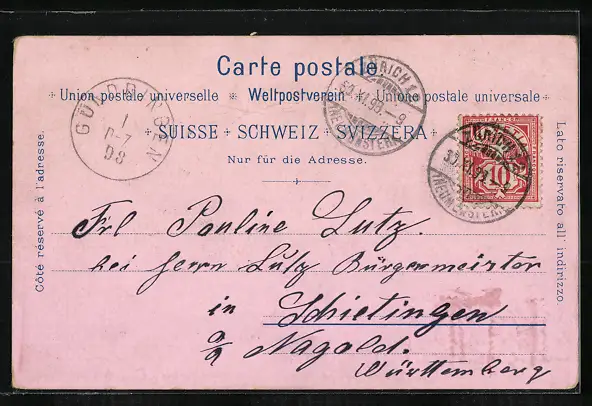 Carte postale.
Union postale universelle Weltpostverein Unione postale universale
SUISSE + SCHWEIZ + SVIZZERA
Nur für die Adresse.
Côté réservé à l'adresse.
Lato riservato all' indirizzo.
GÜNDRINGEN
1
98
ZÜRICH
30.XI.98.-9
(NEUMÜNSTER)
ZÜRICH
30.XI.98.-9
(NEUMÜNSTER)
10
Frl Pauline Lutz.
bei Herrn Lutz Bürgermeister
in Schietingen
a/ Nagold.
Württemberg